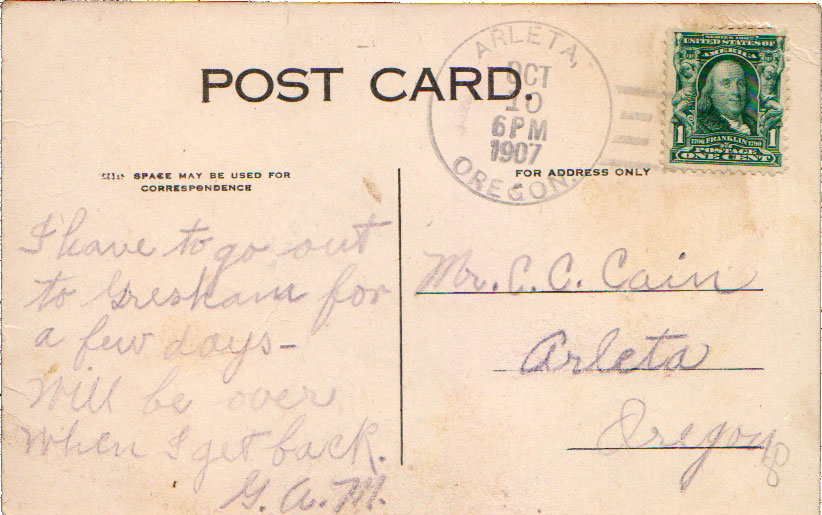 POST CARD.
ARLETA,
OCT
10
6 PM
1907
OREGON.
SERIES 1902
UNITED STATES OF
AMERICA
1 1
1706 FRANKLIN 1790
POSTAGE
ONE CENT
SPACE MAY BE USED FOR
CORRESPONDENCE
FOR ADDRESS ONLY
I have to go out
to Gresham for
a few days–
Will be over
when I get back.
G. A. M.
Mr. C. C. Cain
Arleta
Oregon